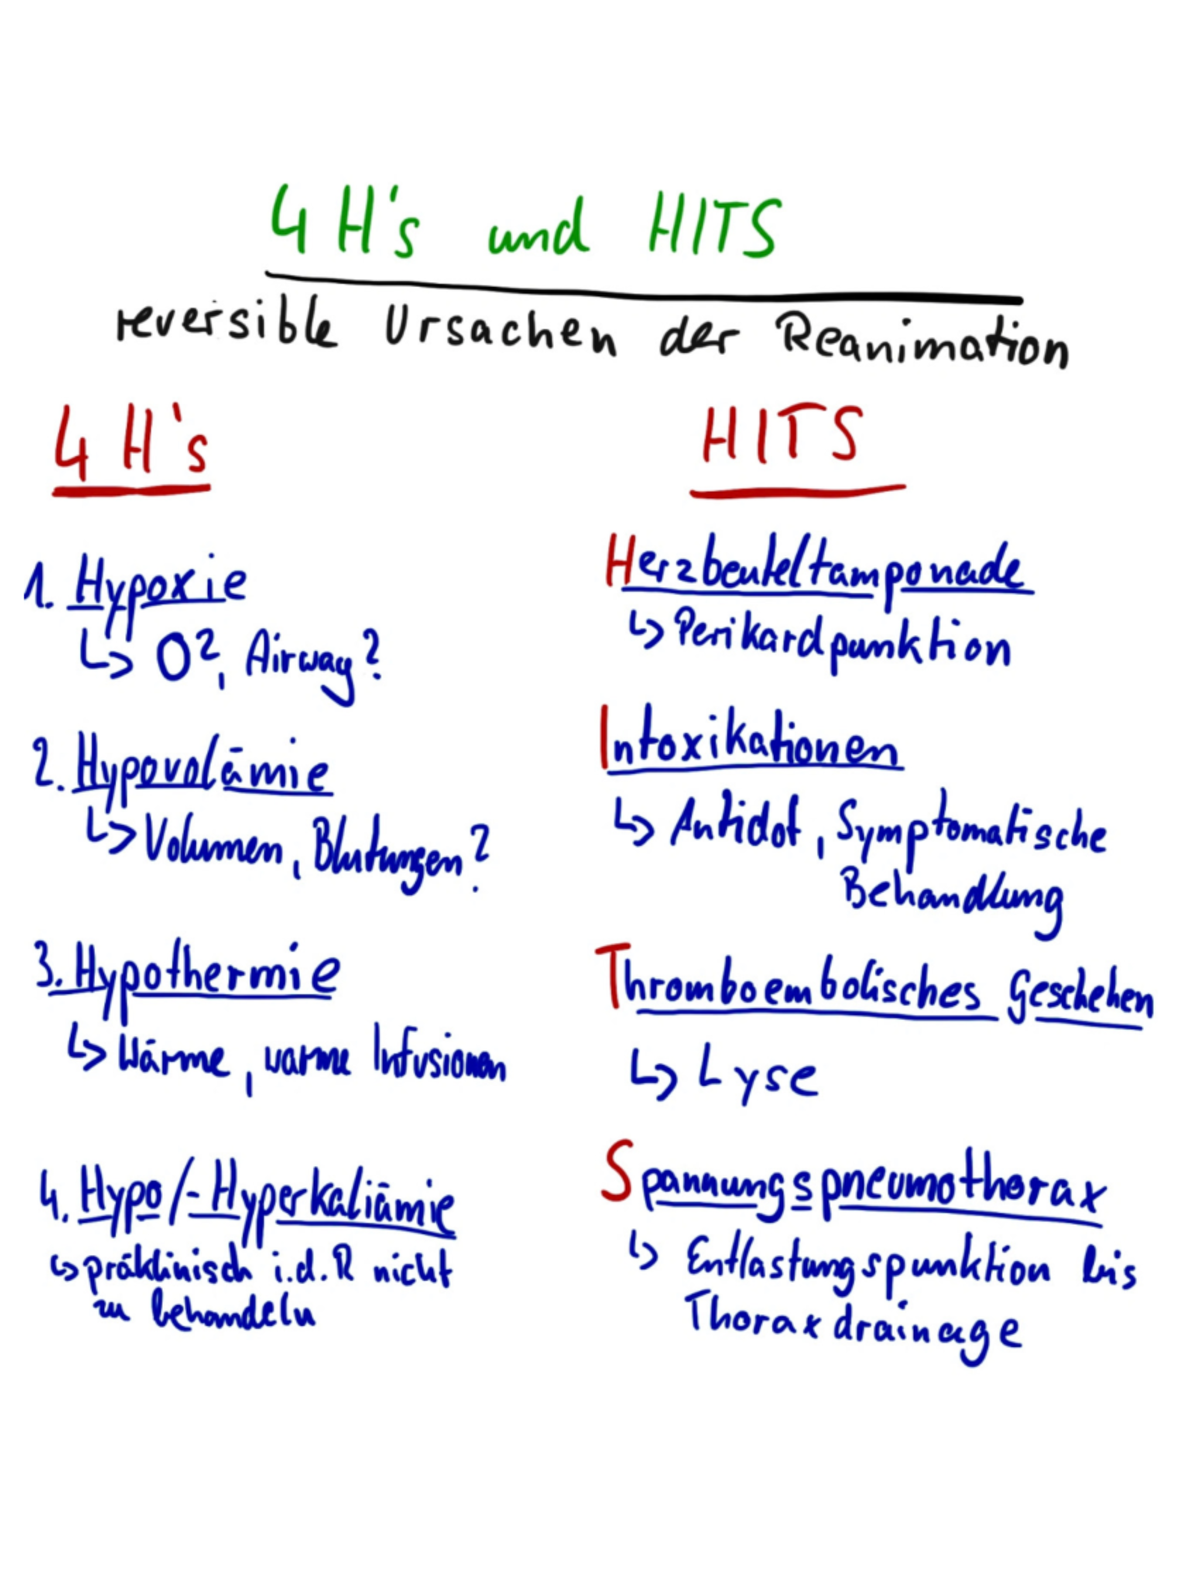 4 H's und HITS
reversible Ursachen der Reanimation
4 H's
1. Hypoxie
↳ O², Airway?
2. Hypovolämie
↳ Volumen, Blutungen?
3. Hypothermie
↳ Wärme, warme Infusionen
4. Hypo/-Hyperkaliämie
↳ präklinisch i.d.R nicht
zu behandeln
HITS
Herzbeuteltamponade
↳ Perikardpunktion
Intoxikationen
↳ Antidot, Symptomatische
Behandlung
Thromboembolisches Geschehen
↳ Lyse
Spannungspneumothorax
↳ Entlastungspunktion bis
Thoraxdrainage